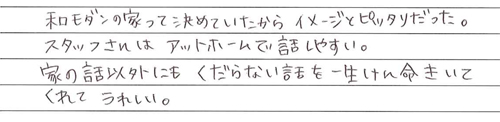 和モダンの家って決めていたから イメージとピッタリだった。
スタッフさんは アットホームで話しやすい。
家の話以外にも くだらない話を一生けん命きいて
くれて うれしい。